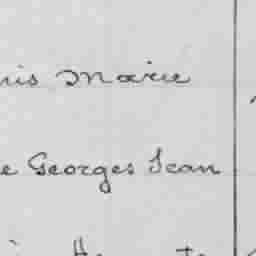 uis Marie
e Georges Jean